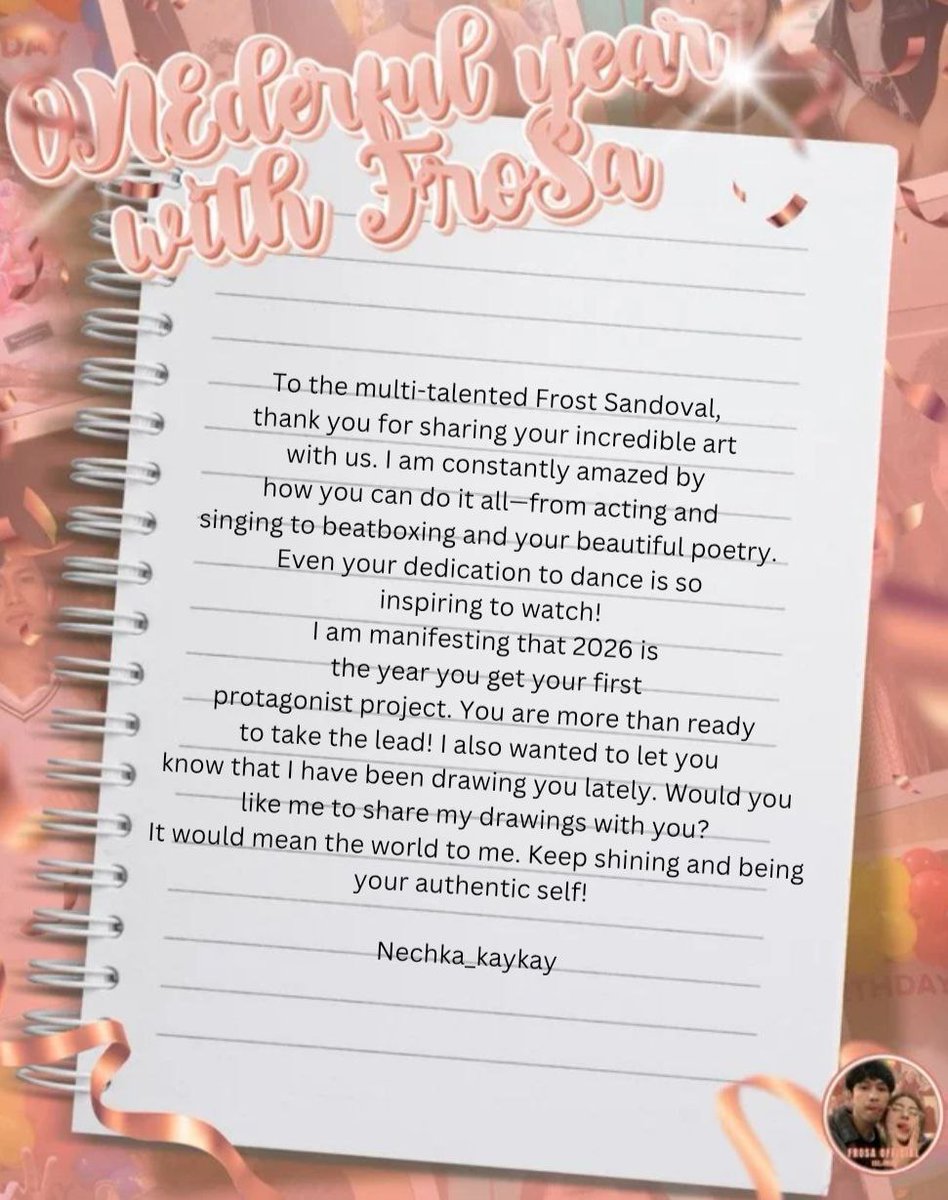 ONEderful year
with FroSa
To the multi-talented Frost Sandoval,
thank you for sharing your incredible art
with us. I am constantly amazed by
how you can do it all—from acting and
singing to beatboxing and your beautiful poetry.
Even your dedication to dance is so
inspiring to watch!
I am manifesting that 2026 is
the year you get your first
protagonist project. You are more than ready
to take the lead! I also wanted to let you
know that I have been drawing you lately. Would you
like me to share my drawings with you?
It would mean the world to me. Keep shining and being
your authentic self!
Nechka_kaykay
FROSA OFFICIAL